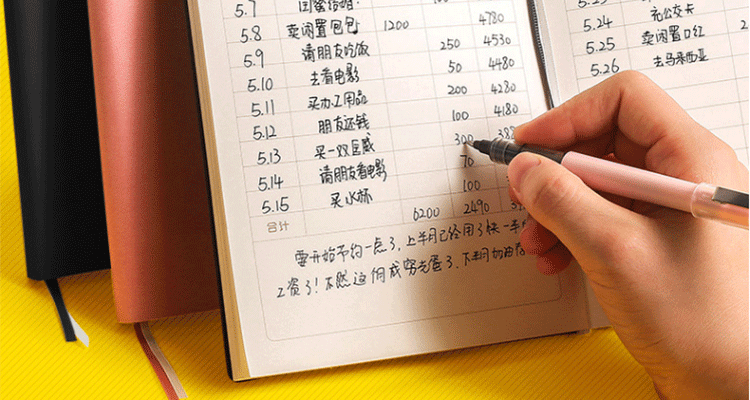 5.7
5.8 卖闲置包包 1200 4780
5.9 请朋友吃饭 250 4530
5.10 去看电影 50 4480
5.11 买办工用品 200 4280
5.12 朋友还钱 100 4180
5.13 买一双匡威 300
5.14 请朋友看电影 70
5.15 买水杯 100
合计 6200 2490
要开始节约一点了,上半月已经用了快一半
工资了!不然这 成穷光蛋了、下半月加油
5.24 充公交卡
5.25 卖闲置口红
5.26 去马来西亚